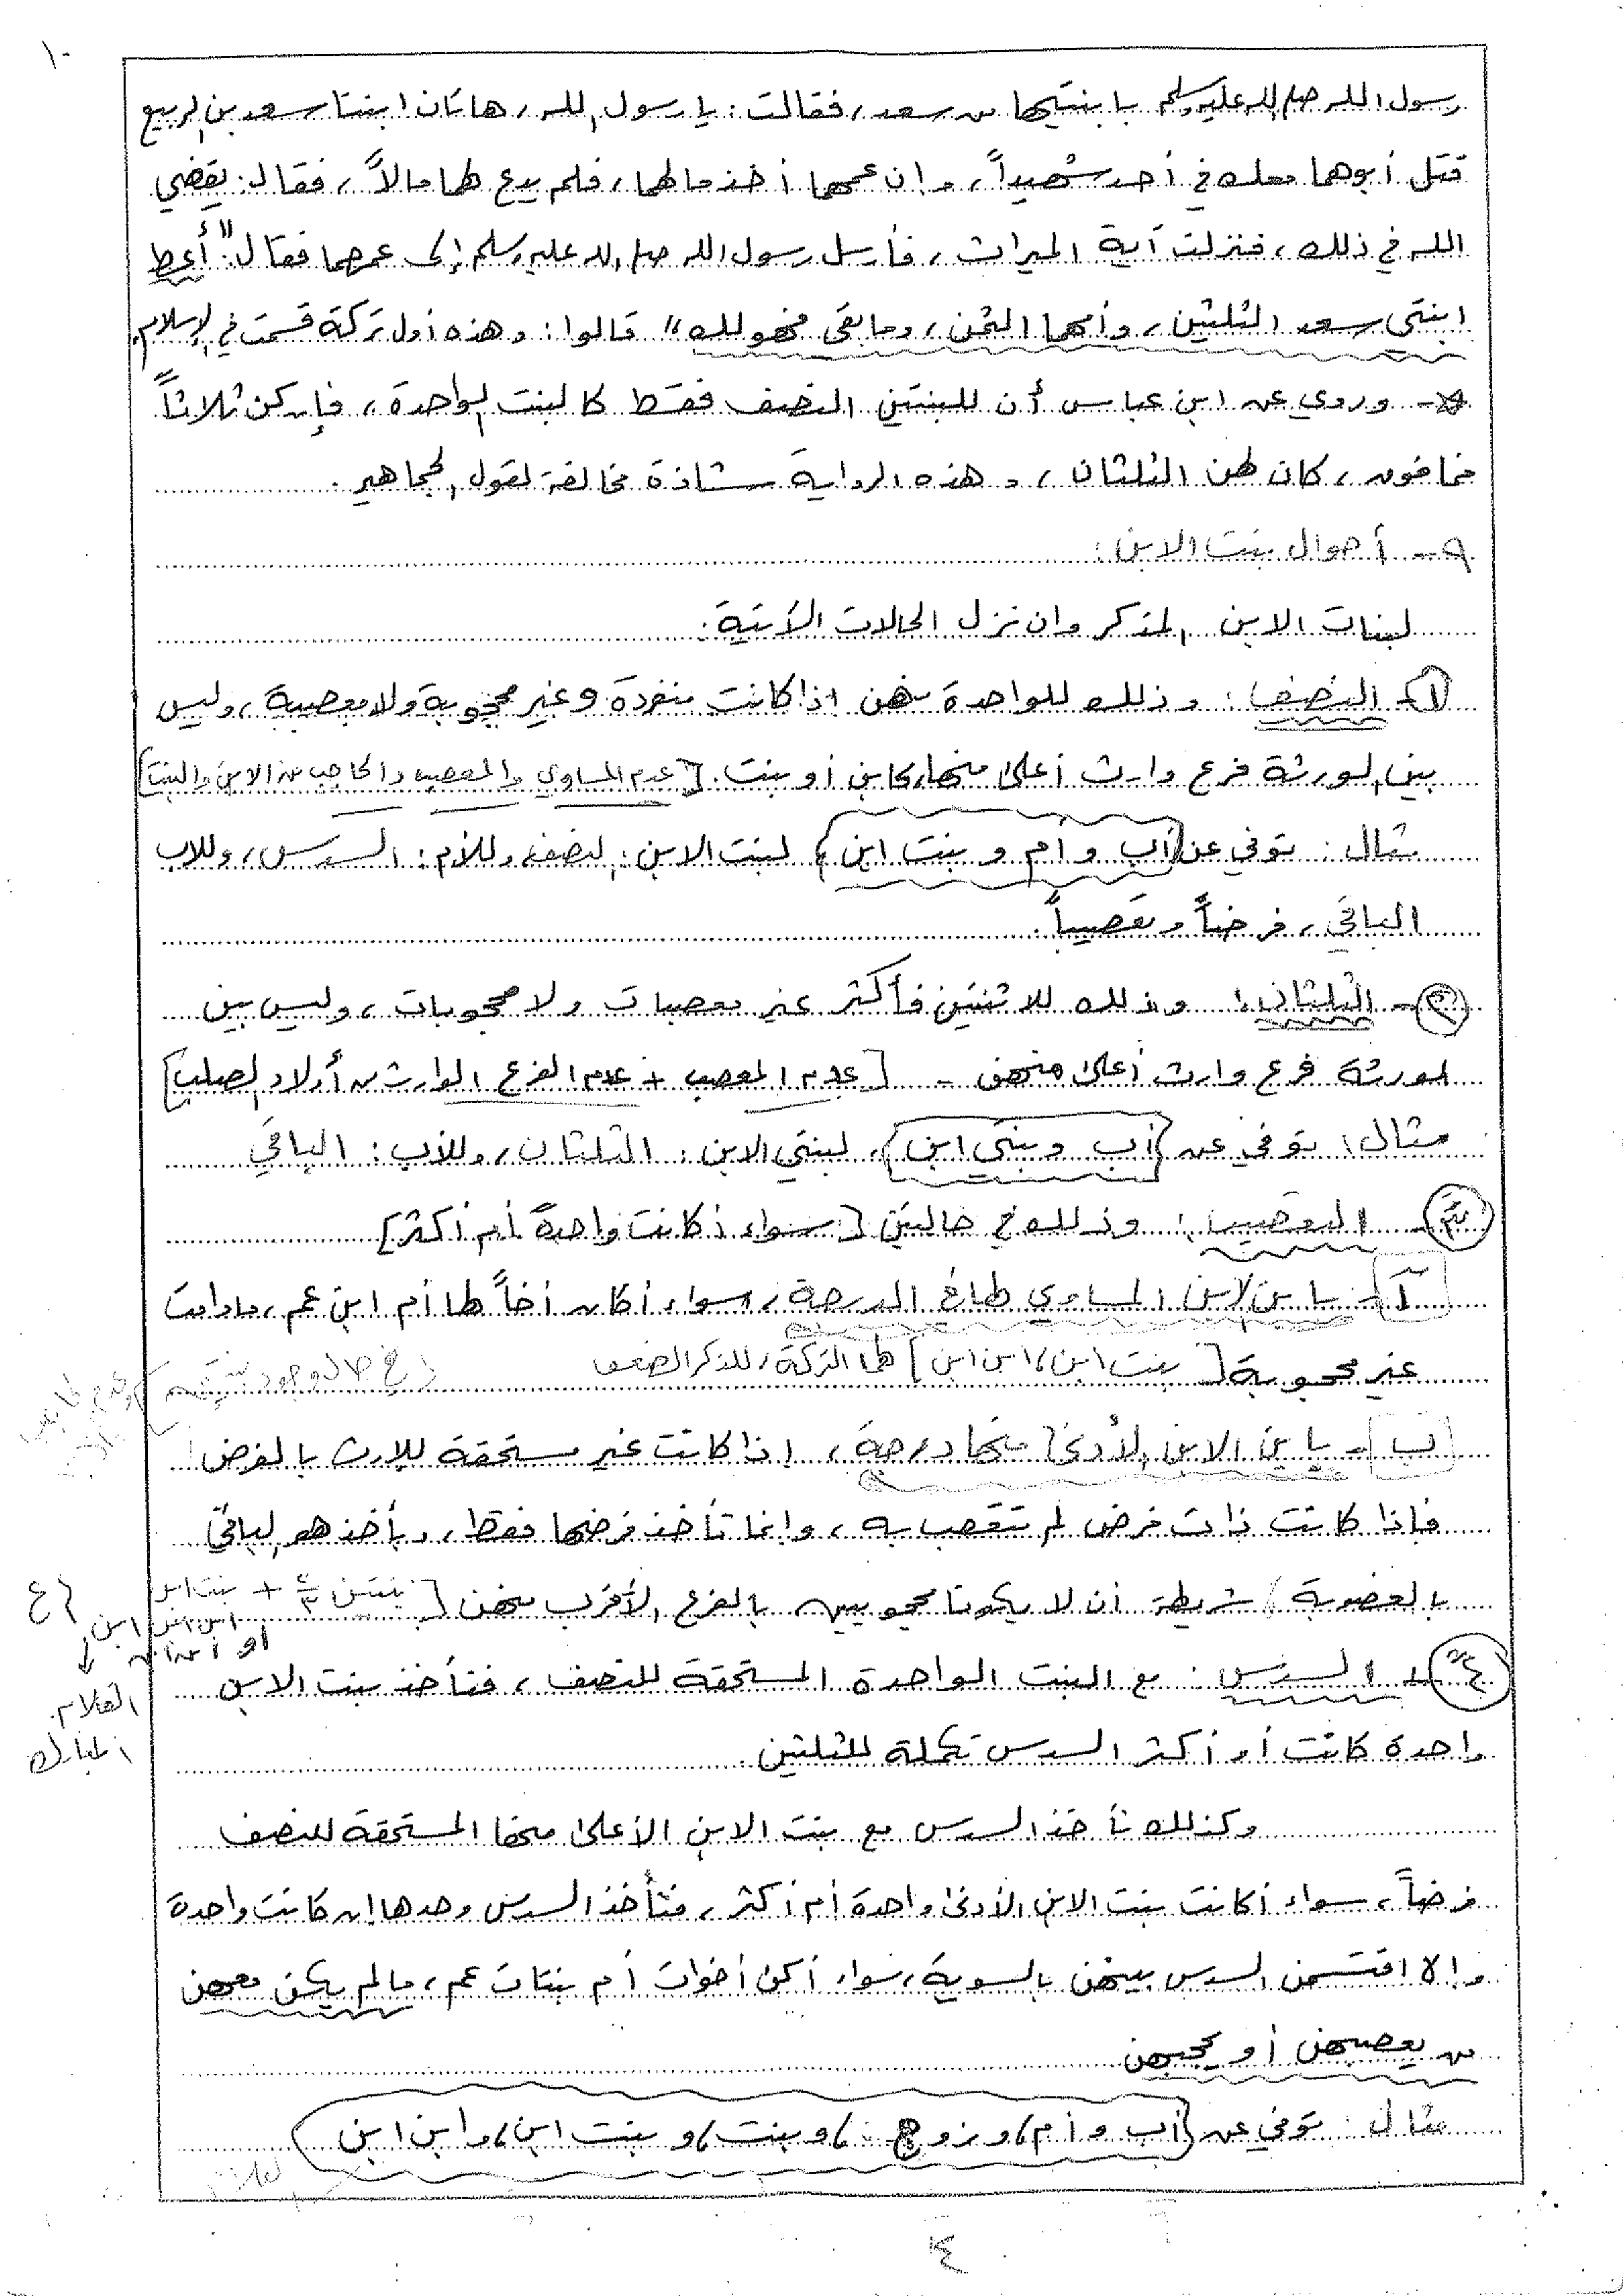 ١٠
رسول الله صلى الله عليه وسلم بابنتيها من سعد، فقالت: يا رسول الله، هاتان ابنتا سعد بن الربيع
قتل أبوهما معك في أحد شهيداً، وإن عمهما أخذ مالهما، فلم يدع لهما مالاً، فقال: يقضي
الله في ذلك، فنزلت آية الميراث، فأرسل رسول الله صلى الله عليه وسلم إلى عمهما فقال: "أعط
ابنتي سعد الثلثين، وأمهما الثمن، وما بقي فهو لك" قالوا: وهذه أول تركة قسمت في الإسلام.
- وروي عن ابن عباس أن للبنتين النصف فقط كالبنت الواحدة، فإن كن ثلاثاً
فما فوق، كان لهن الثلثان، وهذه الرواية شاذة مخالفة لقول الجماهير.
٩- أحوال بنت الابن:
لبنات الابن المذكر وإن نزل الحالات الآتية:
١- النصف: وذلك للواحدة منهن إذا كانت منفردة وغير محجوبة ولا معصبة، وليس
بين الورثة فرع وارث أعلى منها، كابن أو بنت. [عدم المساوي والمعصب والحاجب من الابن والبنت]
مثال: توفي عن {أب وأم وبنت ابن} لبنت الابن: النصف، وللأم: السدس، وللاب
الباقي، فرضاً وتعصيباً.
٢- الثلثان: وذلك للاثنتين فأكثر غير معصبات ولا محجوبات، وليس بين
الورثة فرع وارث أعلى منهن - [عدم المعصب + عدم الفرع الوارث من أولاد الصلب]
مثال: توفي عن {أب وبنتي ابن}، لبنتي الابن: الثلثان، وللأب: الباقي
٣- التعصيب: وذلك في حالتين [سواء أكانت واحدة أم أكثر]
أ- بابن الابن المساوي لها في الدرجة، سواء أكان أخاً لها أم ابن عم، مادامت
غير محجوبة [بنت ابن، ابن ابن] لهما التركة، للذكر الضعف
ب- بابن الابن الأدنى منها درجة، إذا كانت غير مستحقة للإرث بالفرض
فإذا كانت ذات فرض لم تتعصب به، وإنما تأخذ فرضها فقط، ويأخذ هو الباقي
بالعصوبة شريطة أن لا يكونا محجوبين بالفرع الأقرب منهن [بنتين ٢/٣ + بنت ابن
ابن ابن ابن
٤- السدس: مع البنت الواحدة المستحقة للنصف، فتأخذ بنت الابن
الغلام
المبارك
واحدة كانت أو أكثر السدس تكملة للثلثين.
وكذلك تأخذ السدس مع بنت الابن الأعلى منها المستحقة للنصف
فرضاً، سواء أكانت بنت الابن الأدنى واحدة أم أكثر، فتأخذ السدس وحدها إن كانت واحدة
وإلا اقتسمن السدس بينهن بالسوية، سواء أكن أخوات أم بنات عم، مالم يكن معهن
من يعصبهن أو يحجبهن
مثال: توفي عن {أب وأم، وزوج، وبنت، وبنت ابن، وابن ابن
٤